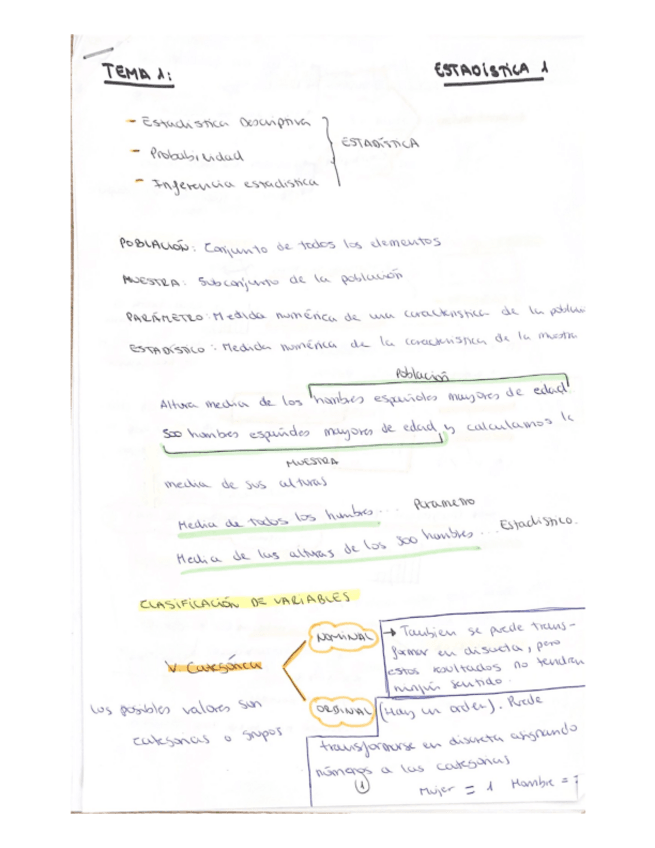 TEMA 1:
ESTADÍSTICA 1
- Estadística Descriptiva
- Probabilidad
- Inferencia estadística
ESTADÍSTICA
POBLACIÓN: Conjunto de todos los elementos
MUESTRA: Subconjunto de la población
PARÁMETRO: Medida numérica de una característica de la poblac
ESTADÍSTICO: Medida numérica de la característica de la muestra
Población
Altura media de los hombres españoles mayores de edad.
500 hombres españoles mayores de edad y calculamos la
MUESTRA
media de sus alturas
Media de todos los hombres... Parametro
Media de las alturas de los 500 hombres... Estadístico.
CLASIFICACIÓN DE VARIABLES
V. Categórica
NOMINAL
→ También se puede trans-
formar en discreta, pero
estos resultados no tendrán
ningún sentido.
Los posibles valores son
categorías o grupos
ORDINAL (Hay un orden). Puede
transformarse en discreta asignando
números a las categorías
1
Mujer = 1 Hombre =